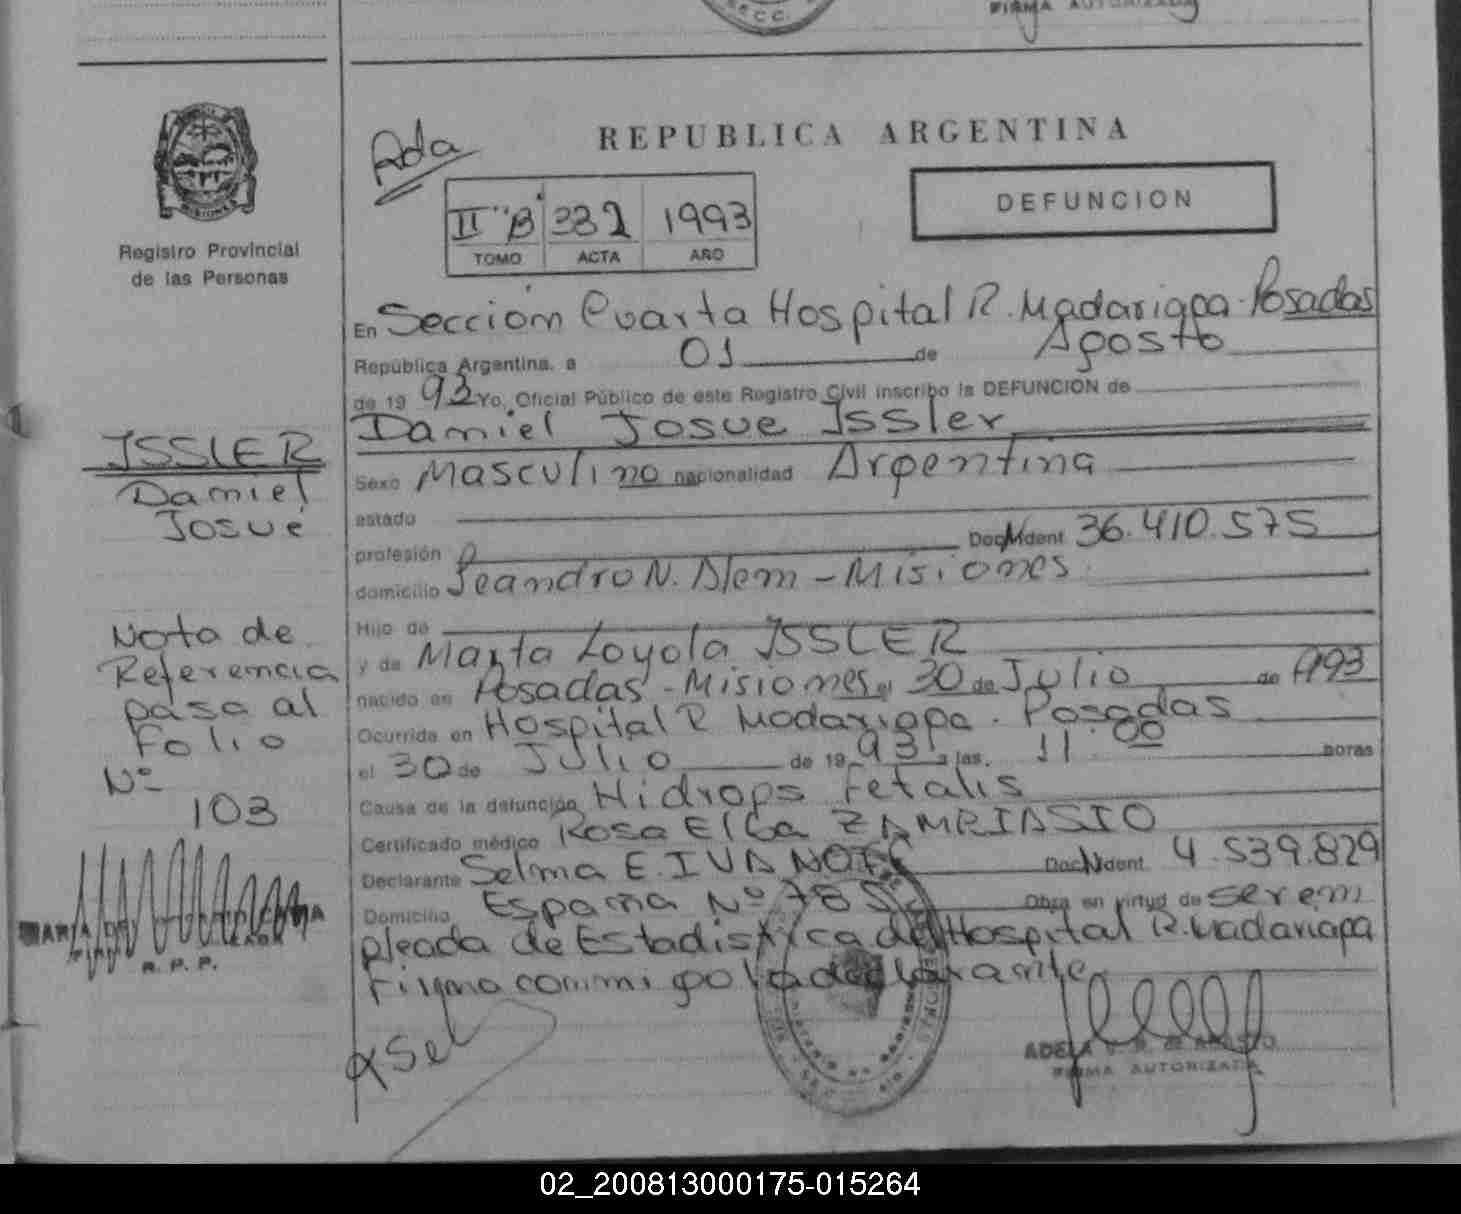 SECC.
FIRMA AUTORIZADA
Registro Provincial
de las Personas
ISSLER
Daniel
Josué
Nota de
Referencia
pasa al
Folio
Nº
103
R. P. P.
Ada
REPUBLICA ARGENTINA
DEFUNCION
II "B" 332 1993
TOMO ACTA AÑO
En Sección Cuarta Hospital R. Madariaga - Posadas
República Argentina, a 01 de Agosto
de 19 93 Yo, Oficial Público de este Registro Civil inscribo la DEFUNCION de
Daniel Josue Issler
Sexo Masculino nacionalidad Argentina
estado
profesión Doc. Ident. 36.410.575
domicilio Leandro N. Alem - Misiones
Hijo de
y de Marta Loyola ISSLER
nacido en Posadas - Misiones el 30 de Julio de 1993
Ocurrida en Hospital R Madariaga . Posadas
el 30 de Julio de 19 93 a las 11.00 horas
Causa de la defunción Hidrops Fetalis
Certificado médico Rosa Elba ZAMRIASIO
Declarante Selma E. IVANOFF Doc. Ident. 4.539.829
Domicilio España Nº 785 Obra en virtud de ser em
pleada de Estadistica del Hospital R. Madariaga
Firma conmigo la declarante
Sel
ADELA
FIRMA AUTORIZADA
02_200813000175-015264